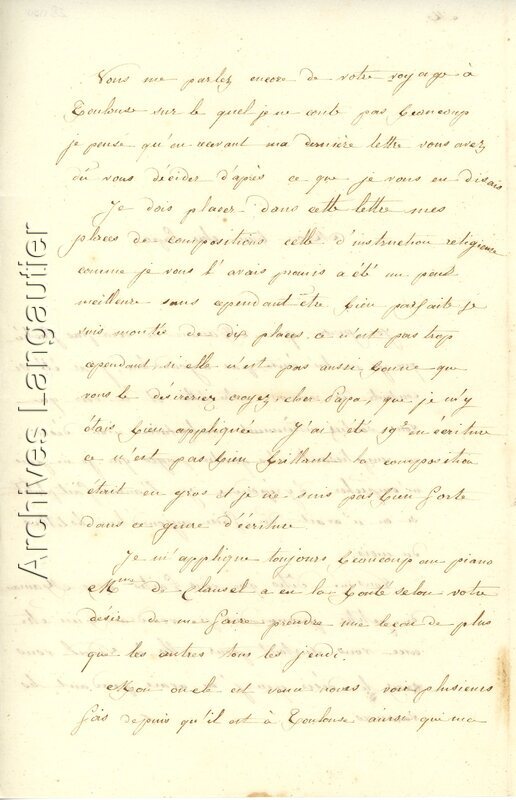 Vous me parlez encore de votre voyage à
Toulouse sur le quel je ne conte pas beaucoup
je pense qu'en recevant ma dernière lettre vous avez
dû vous décider d'après ce que je vous en disais
Je dois placer dans cette lettre mes
places de compositions celle d'instruction religieuse
comme je vous l'avais promis a été un peu
meilleure sans cependant être bien parfaite je
suis montée de dix places ce n'est pas trop
cependant si elle n'est pas aussi bonne que
vous le désireriez croyez cher Papa que je m'y
étais bien appliquée J'ai été 19e en écriture
ce n'est pas bien brillant la composition
était en gros et je ne suis pas bien forte
dans ce genre d'écriture
Je m'applique toujours beaucoup au piano
Mme de Clausel a eu la bonté selon votre
désir de me faire prendre une leçon de plus
que les autres tous les jeudi.
Mon oncle est venu nous voir plusieurs
fois depuis qu'il est à Toulouse ainsi que ma
Archives Langautier